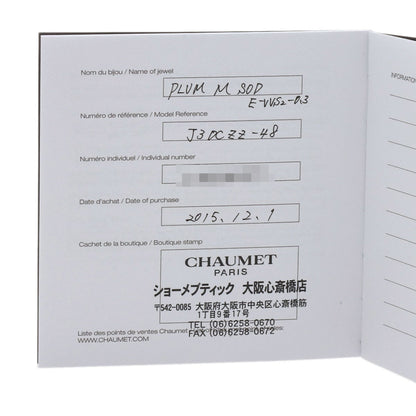 Nom du bijou / Name of jewel
PLUM M SOD
E-VVS2-0.3
Numéro de référence / Model Reference
J3DCZZ-48
Numéro individuel / Individual number
Date d'achat / Date of purchase
2015.12.1
Cachet de la boutique / Boutique stamp
CHAUMET
PARIS
ショーメブティック 大阪心斎橋店
〒542-0085 大阪府大阪市中央区心斎橋筋
1丁目9番17号
TEL (06)6258-0670
FAX (06)6258-0672
Liste des points de ventes Chaumet
WWW.CHAUMET.COM
INFORMATION